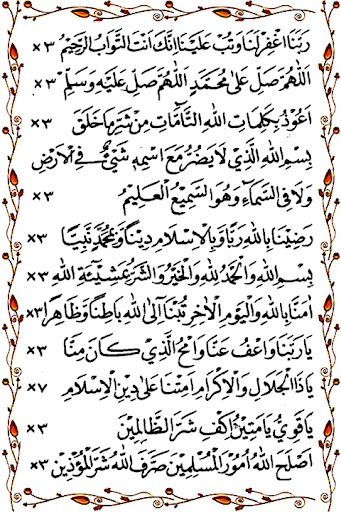 رَبَّنَا اغْفِرْ لَنَا وَتُبْ عَلَيْنَا اِنَّكَ اَنْتَ التَّوَّابُ الرَّحِيْمُ ×٣
اَللّٰهُمَّ صَلِّ عَلٰى مُحَمَّدٍ اَللّٰهُمَّ صَلِّ عَلَيْهِ وَسَلِّمْ ×٣
اَعُوْذُ بِكَلِمَاتِ اللّٰهِ التَّامَّاتِ مِنْ شَرِّ مَا خَلَقَ ×٣
بِسْمِ اللّٰهِ الَّذِيْ لَا يَضُرُّ مَعَ اسْمِهِ شَيْءٌ فِي الْاَرْضِ
وَلَا فِي السَّمَاءِ وَهُوَ السَّمِيْعُ الْعَلِيْمُ ×٣
رَضِيْنَا بِاللّٰهِ رَبًّا وَبِالْاِسْلَامِ دِيْنًا وَبِمُحَمَّدٍ نَّبِيًّا ×٣
بِسْمِ اللّٰهِ وَالْحَمْدُ لِلّٰهِ وَالْخَيْرُ وَالشَّرُّ بِمَشِيْئَةِ اللّٰهِ ×٣
اٰمَنَّا بِاللّٰهِ وَالْيَوْمِ الْاٰخِرِ تُبْنَا اِلَى اللّٰهِ بَاطِنًا وَظَاهِرًا ×٣
يَا رَبَّنَا وَاعْفُ عَنَّا وَامْحُ الَّذِيْ كَانَ مِنَّا ×٣
يَا ذَا الْجَلَالِ وَالْاِكْرَامِ اَمِتْنَا عَلٰى دِيْنِ الْاِسْلَامِ ×٧
يَا قَوِيُّ يَا مَتِيْنُ اِكْفِ شَرَّ الظَّالِمِيْنَ ×٣
اَصْلَحَ اللّٰهُ اُمُوْرَ الْمُسْلِمِيْنَ صَرَفَ اللّٰهُ شَرَّ الْمُؤْذِيْنَ ×٣